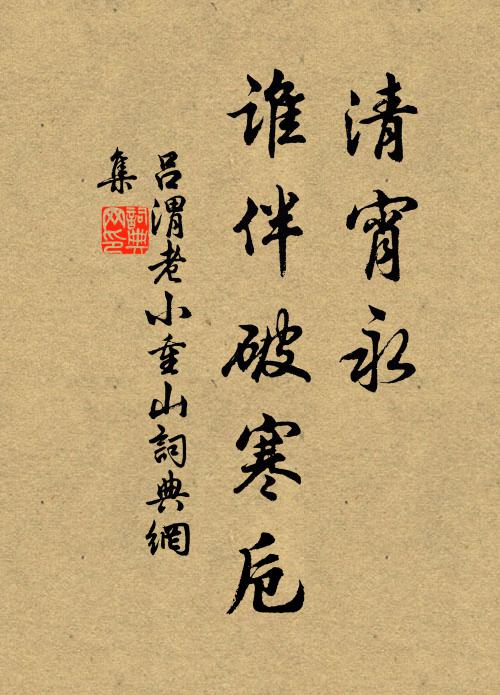 清宵永
谁伴破寒卮
吕渭老小重山詞典網
集
詞典
网印